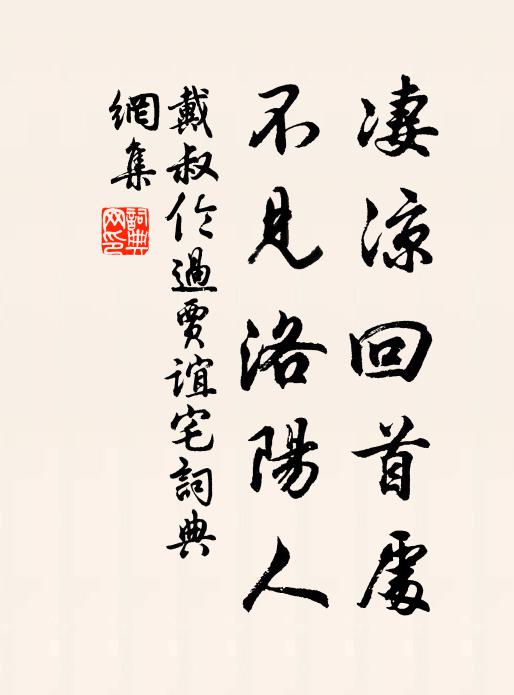 凄涼回首處
不見洛陽人
戴叔伦過賈誼宅詞典
網集
詞典
网印